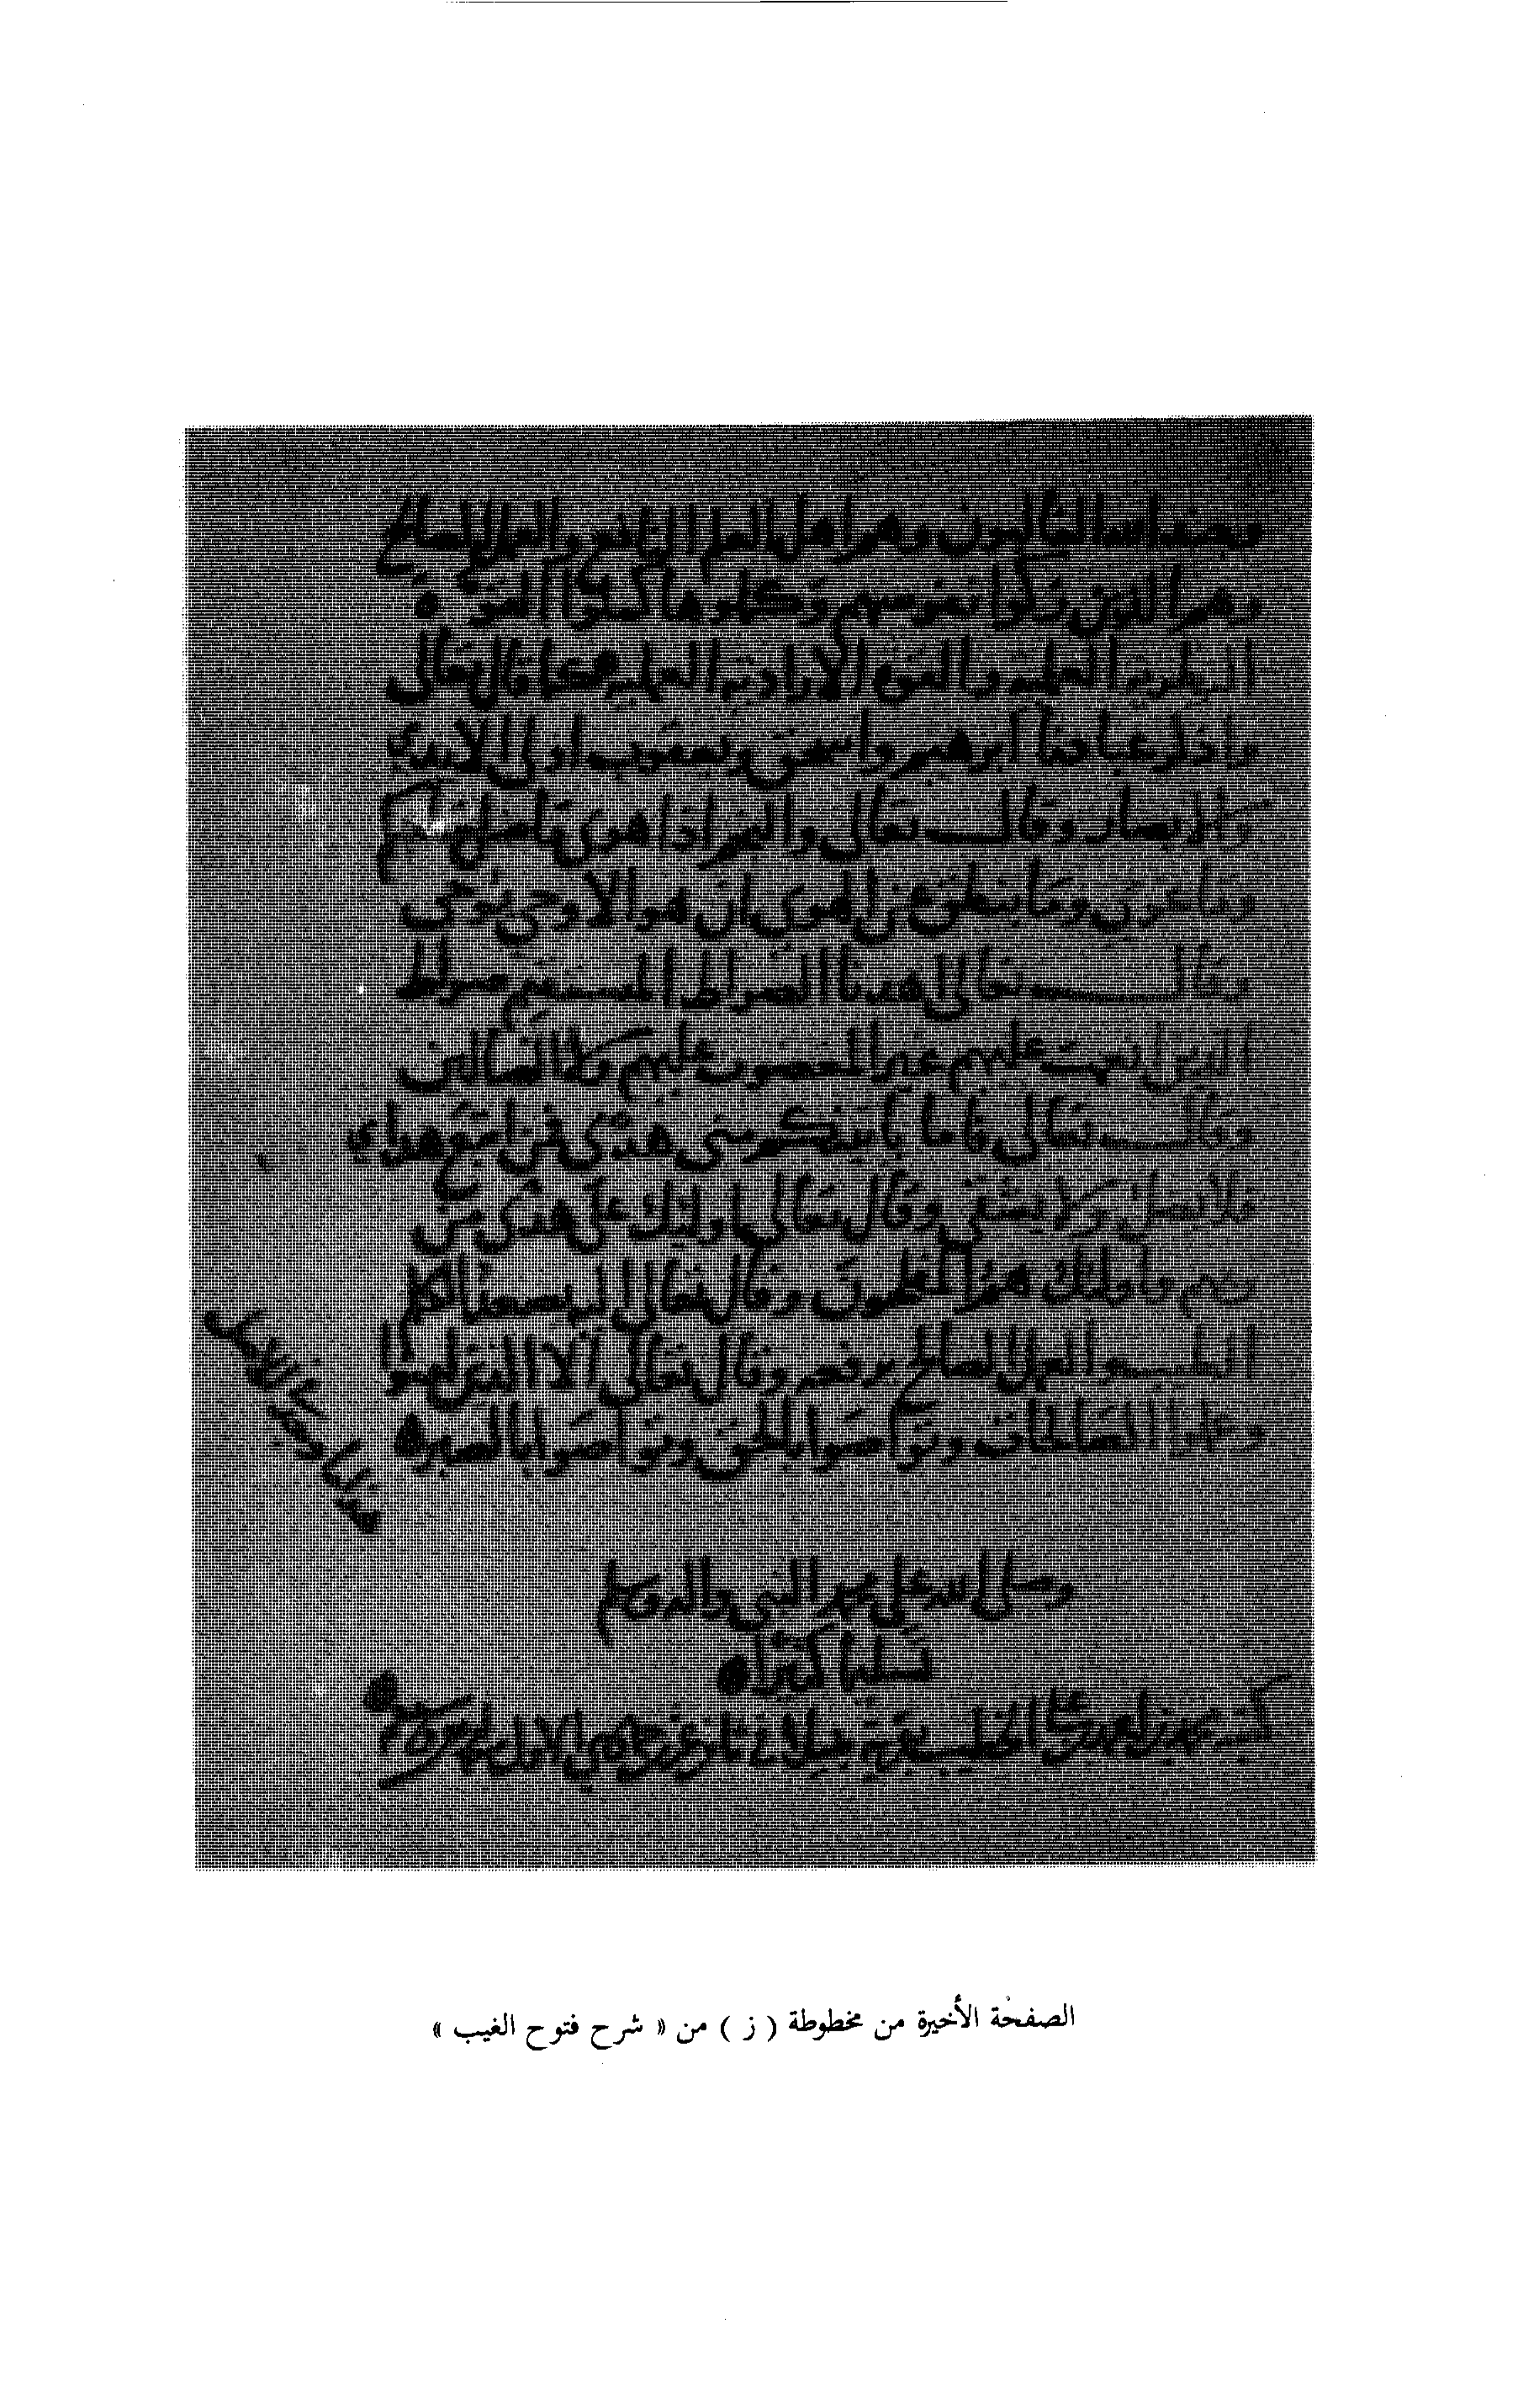 وهم اهل العلم النافع والعمل الصالح
وهم الذين زكوا نفوسهم وكملوها كملوا القوة
النظرية العلمية والقوة الارادية العملية كما قال تعالى
واذكر عبادنا ابرهيم واسحق ويعقوب اولي الايدي
والابصار وقال تعالى والنجم اذا هوى ما ضل صاحبكم
وما غوى وما ينطق عن الهوى ان هو الا وحي يوحى
وقال تعالى اهدنا الصراط المستقيم صراط
الذين انعمت عليهم غير المغضوب عليهم ولا الضالين
وقال تعالى فاما ياتينكم مني هدى فمن اتبع هداي
فلا يضل ولا يشقى وقال تعالى اوليك على هدى من
ربهم واوليك هم المفلحون وقال تعالى اليه يصعد الكلم
الطيب والعمل الصالح يرفعه وقال تعالى الا الذين امنوا
وعملوا الصالحات وتواصوا بالحق وتواصوا بالصبر
وصلى الله على محمد النبي واله وسلم
تسليما كثيرا
كتبه محمد بن الخطيب
الصفحة الأخيرة من مخطوطة ( ز ) من « شرح فتوح الغيب »